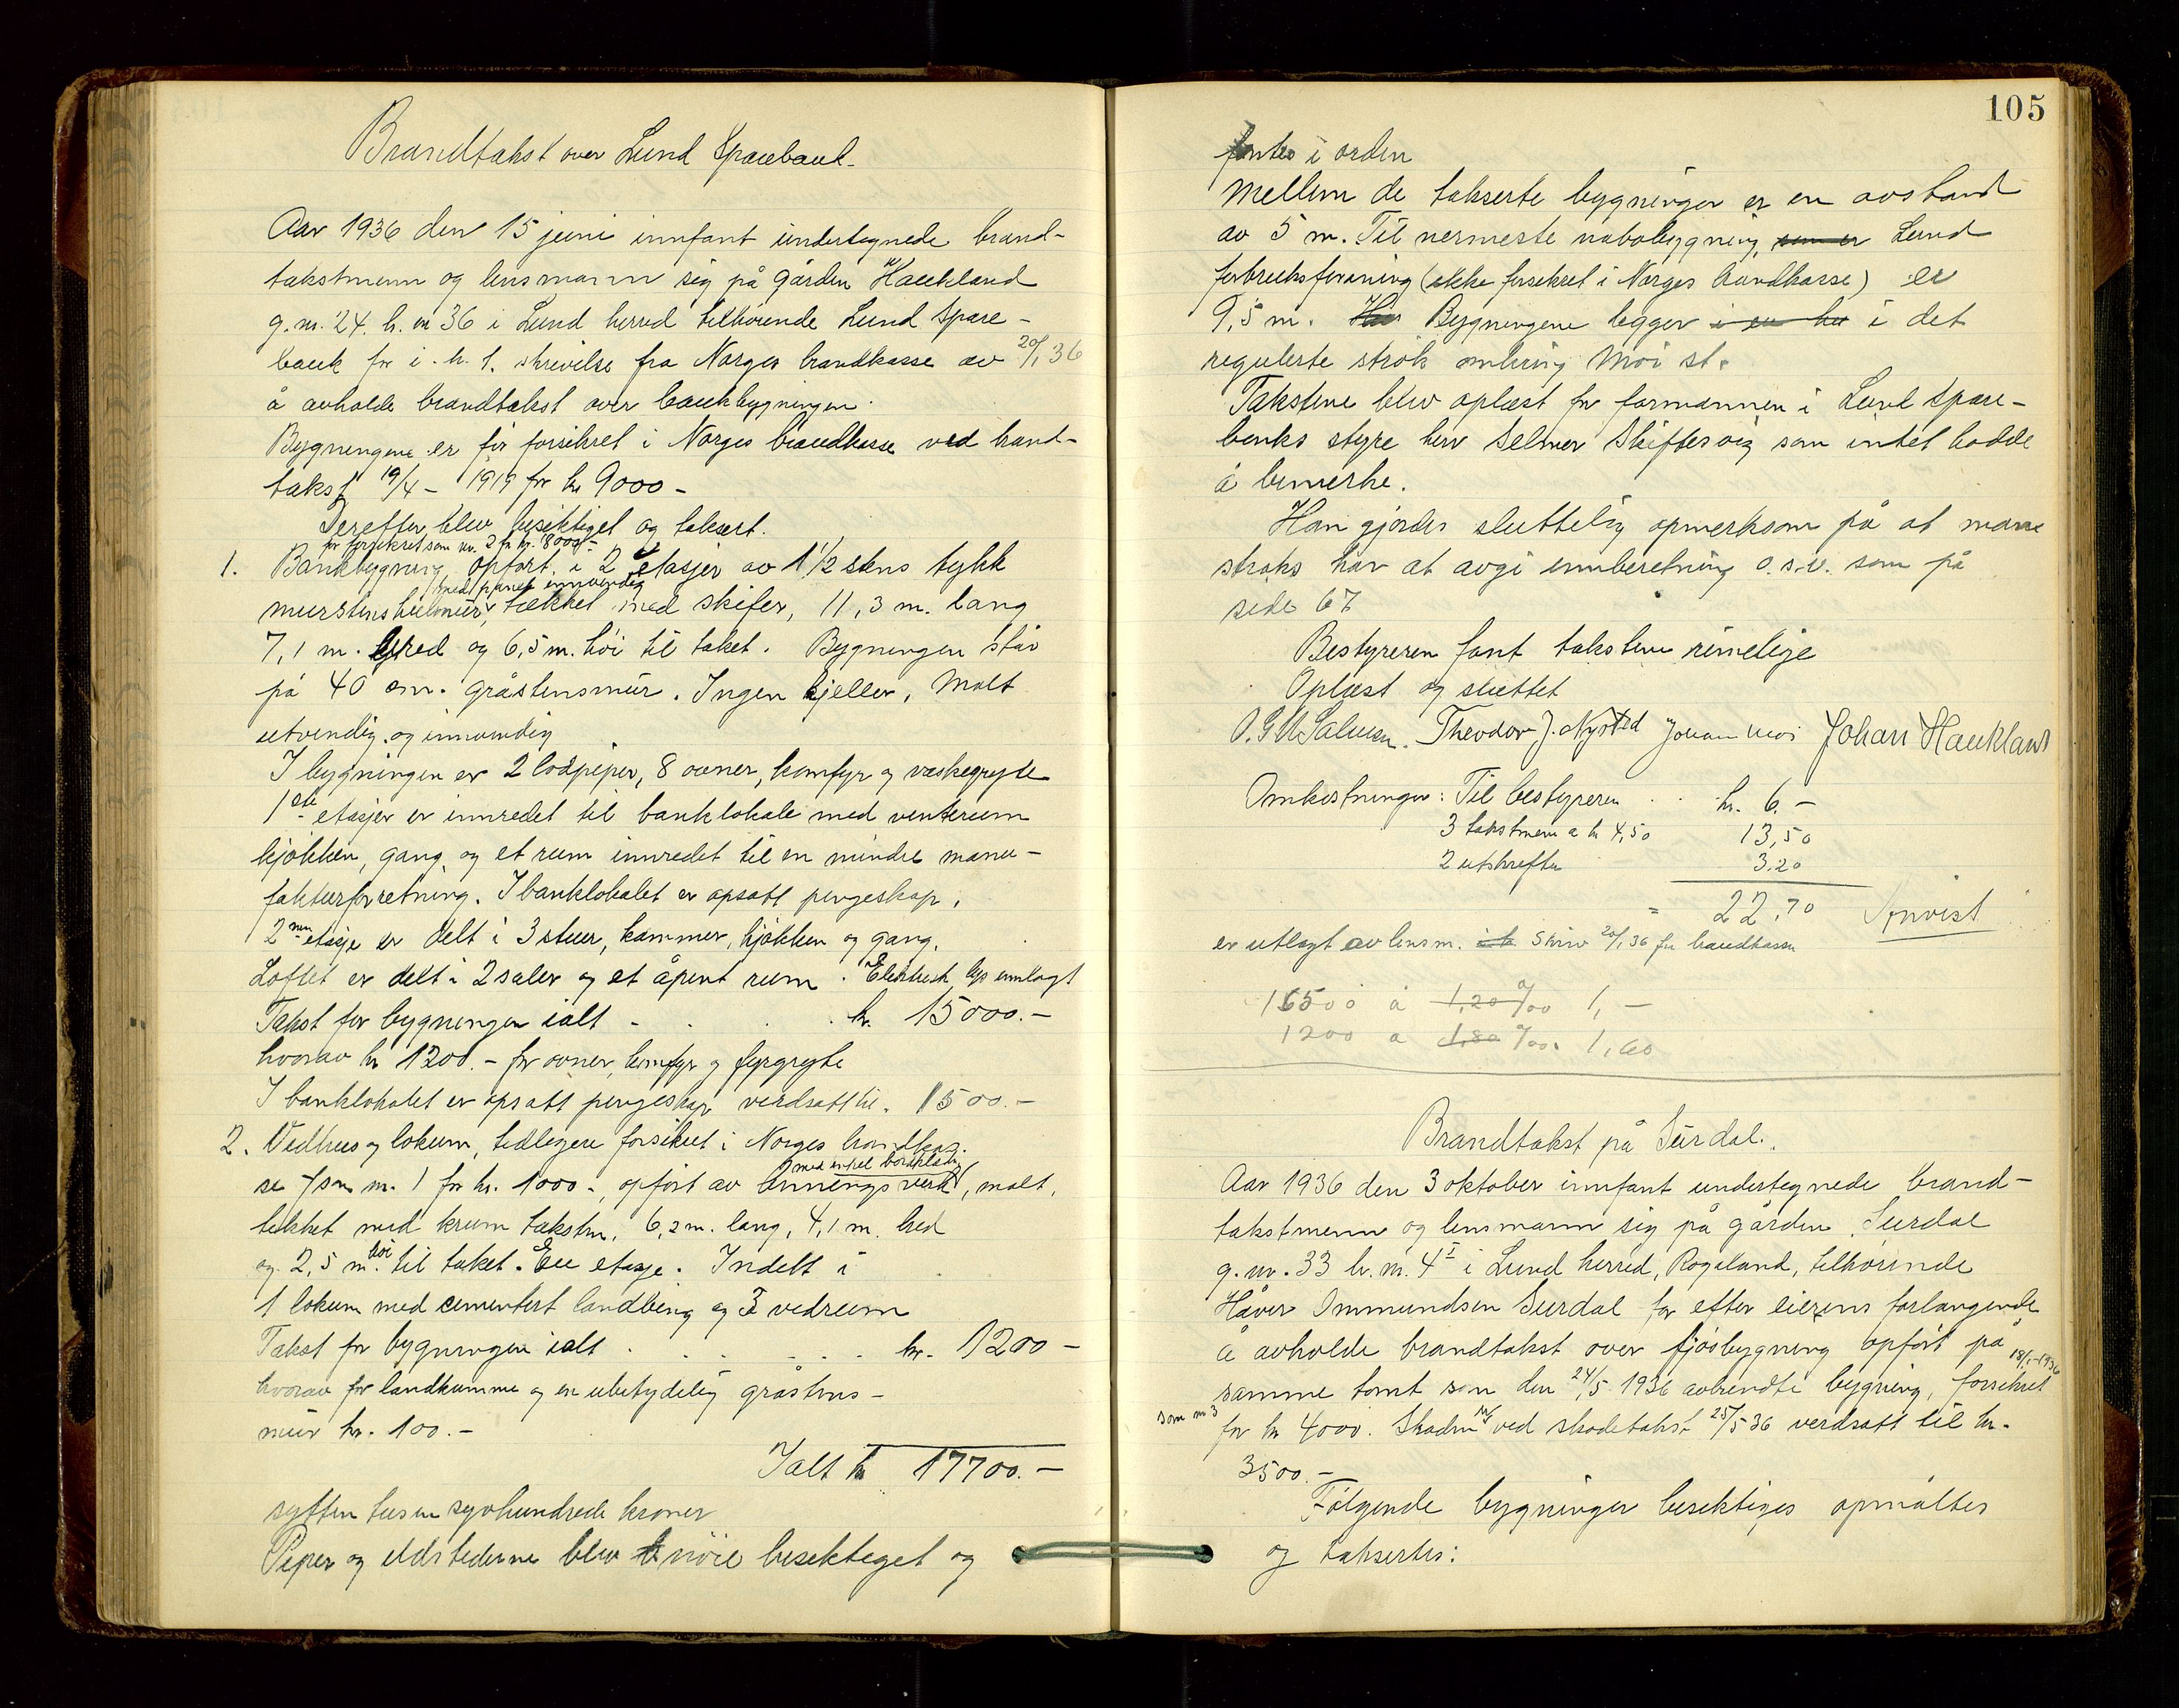 Brandtakst over Lund Sparebank.
Aar 1936 den 15 juni innfant undertegnede brand-
takstmenn og lensmann sig på gården Haukland
g.nr. 24. br. nr 36 i Lund herred tilhörende Lund Spare-
bank for i. h. t. skrivelse fra Norges brandkasse av 20/1 36
å avholde brandtakst over bankbygningen.
Bygningene er för forsikret i Norges brandkasse ved brand-
takst 19/4 - 1919 for kr 9000 -
Derefter blev besiktiget og taksert.
før forsikret som nr. 2 for kr. 8000 -
1. Bankbygning opfört i 2 etasjer av 1 1/2 stens tykk
med panel innvendig
murstens hulmür, tækket med skifer, 11,3 m. lang
7,1 m. bred og 6,5 m. höi til taket. Bygningen står
på 40 cm. gråstensmür. Ingen kjeller. Malt
utvendig og innvendig
I bygningen er 2 lodpiper, 8 ovner, komfyr og vaskegryte
1ste etasjer er innredet til banklokale med venterum
kjökken, gang og et rum innredet til en mindre manu-
fakturforretning. I banklokalet er opsatt pengeskap.
2nen etasje er delt i 3 stuer, kammer, kjökken og gang.
Loftet er delt i 2 saler og et åpent rum. Elektrisk lys innlagt
Takst for bygningen ialt - . . . kr. 15000.-
hvorav kr 1200.- for ovner, komfyr og fyrgryte
I banklokalet er opsatt pengeskap verdsatt til. 1500.-
2. Vedhus og lokum, tidligere forsikret i Norges brandkas-
med enkel bordklædn.
se som nr. 1 for kr. 1000 -, opfört av binningsverk, malt,
tækket med krum taksten, 6,2 m. lang, 4,1 m. bred
og 2,5 m. höi til taket. En etasje. Indelt i
1 lokum med cementert landbing og 3 vedrum
Takst for bygningen ialt . . . . . kr. 1200 -
hvorav for landkumme og en ubetydelig gråstens-
mür kr. 100.-
Ialt kr 17700.-
sytten tusen syvhundrede kroner
Piper og ildstederne blev nöie besiktiget og
105
fantes i orden
Mellem de takserte bygninger er en avstand
av 5 m. Til nermeste nabobygning, som er Lund
forbruksforening (ikke forsikret i Norges brandkasse) er
9,5 m. Har Bygningene legger i en by i det
regulerte strök omkring Moi st.
Takstene blev oplæst for formannen i Lund Spare-
banks styre herr Selmer Skiftesvig som intet hadde
å bemerke.
Han gjordes sluttelig opmerksom på at man
straks har at avgi innberetning o.s.v. som på
side 67
Bestyreren fant takstene rimelige
Oplæst og sluttet
O. G. U. Salmen. Theodor J. Nysted Johan Moi Johan Haukland
Omkostninger: Til bestyreren . . kr. 6.-
3 takstmenn a kr 4,50 13,50
2 utskrifter 3.20
= 22,70 Anvist
er utlagt av lensm. skriv 20/1 36 fra brandkassen
16500 à 1,20 o/oo 1,-
1200 a 1,80 o/oo. 1,60
Brandtakst på Surdal.
Aar 1936 den 3 oktober innfant undertegnede brand-
takstmenn og lensmann sig på gården Surdal
g.nr. 33 br.nr. 4 I i Lund herred, Rogaland, tilhörende
Håver Ommundsen Surdal for efter eierens forlangende
å avholde brandtakst over fjösbygning opfört på
samme tomt som den 24/5 1936 avbrendte bygning, forsikret 18/1-1936
som nr 3 for kr 4000. Skaden ved skadetakst 25/5 36 verdsatt til kr.
3500.-
Fölgende bygninger besiktiges opmåltes
og taksertes: